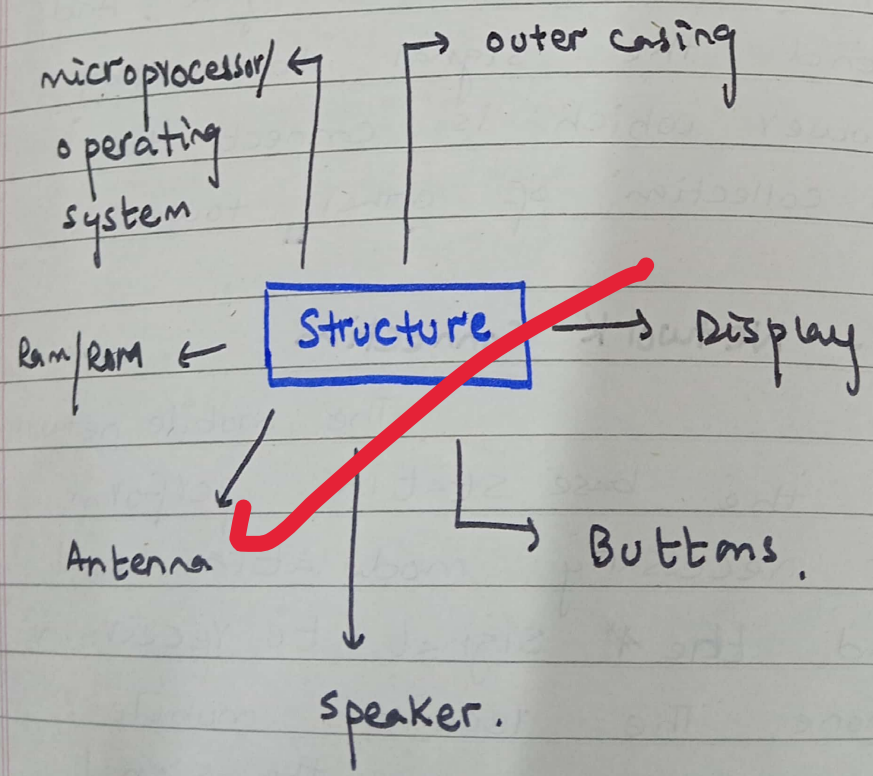 microprocessor/
operating
system
outer casing
Structure
Ram/ROM
Display
Antenna
Buttons.
Speaker.